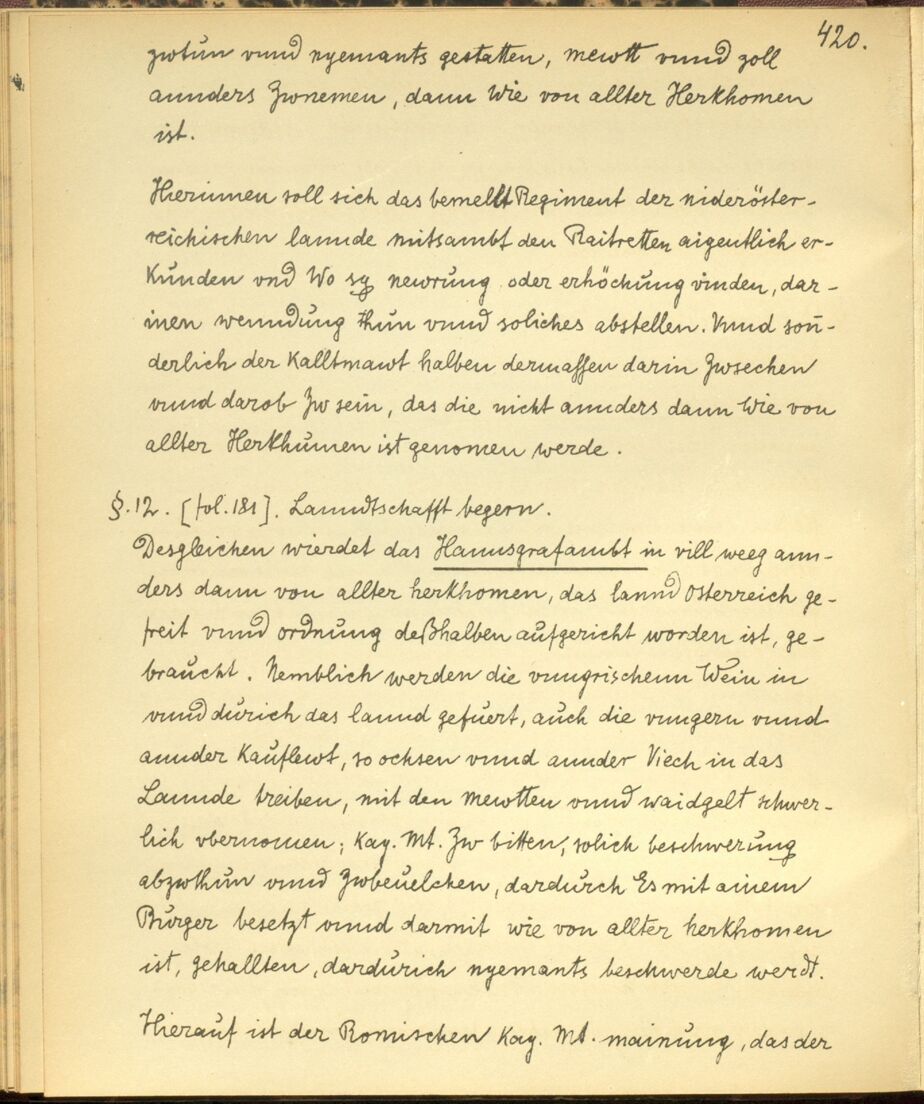 420.
zwtun vnnd nyemants gestatten, mewtt vnnd zoll
annders Zwnemen, dann Wie von allter Herkhomen
ist.
Hierinnen soll sich das bemellt Regiment der nideröster-
reichischen lannde mitsambt den Raitretten aigentlich er-
kunden vnd Wo sy newrung oder erhöchung vinden, dar-
inen wenndung thun vnnd soliches abstellen. Vnnd son̄-
derlich der Kalltmawt halben dermassen darin Zwsechen
vnnd darob Zw sein, das die nicht annders dann Wie von
allter Herkhumen ist genomen werde.
§.12. [fol.181]. Lanndtschafft begern.
Desgleichen wierdet das Hannsgrafambt in vill weeg ann-
ders dann von allter herkhomen, das lannd Osterreich ge-
freit vnnd ordnung deßhalben aufgericht worden ist, ge-
braucht. Nemblich werden die vnngrischenn Wein in
vnnd durich das lannd gefuert, auch die vnngern vnnd
annder Kauflewt, so ochsen vnnd annder Viech in das
Lannde treiben, mit den mewtten vnnd waidgelt schwer-
lich vbernomen; Kay. Mt. Zw bitten, solich beschwerung
abzwthun vnnd Zwbeuelchen, dardurch Es mit ainem
Burger besetzt vnnd darmit wie von allter herkhomen
ist, gehallten, dardurich nyemants beschwerde werdt.
Hierauf ist der Romischen Kay. Mt. mainung, das der